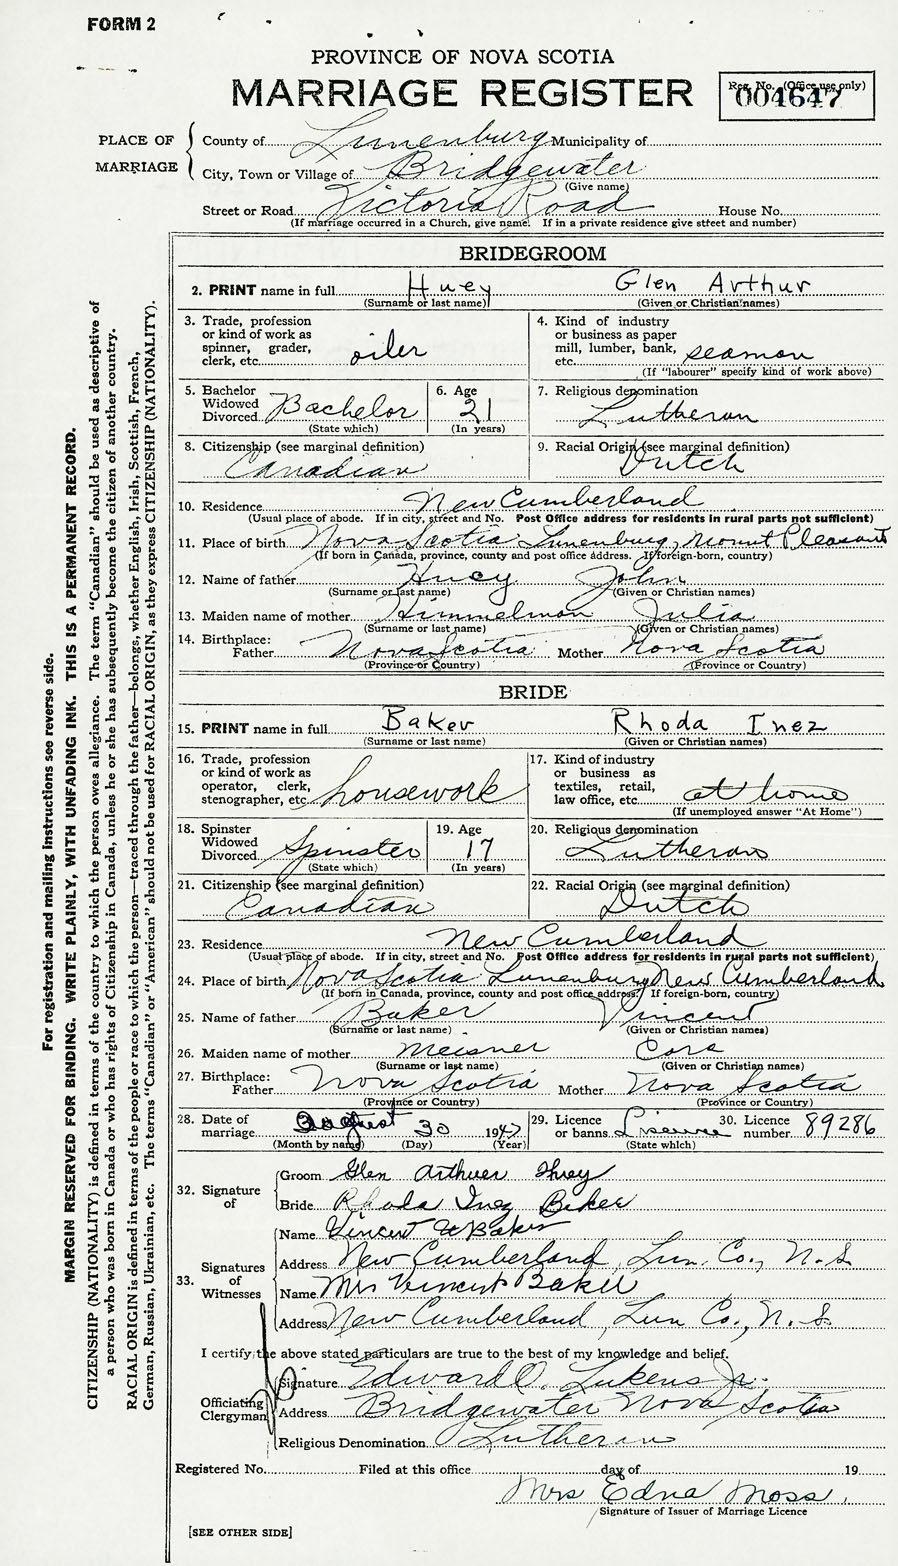 FORM 2
PROVINCE OF NOVA SCOTIA
MARRIAGE REGISTER
Reg. No. (Office use only)
004647
PLACE OF MARRIAGE
County of Lunenburg Municipality of
City, Town or Village of Bridgewater
(Give name)
Street or Road Victoria Road House No.
(If marriage occurred in a Church, give name. If in a private residence give street and number)
BRIDEGROOM
2. PRINT name in full Huey Glen Arthur
(Surname or last name) (Given or Christian names)
3. Trade, profession or kind of work as spinner, grader, clerk, etc. oiler
4. Kind of industry or business as paper mill, lumber, bank, etc. seaman
(If "labourer" specify kind of work above)
5. Bachelor Widowed Divorced Bachelor
(State which)
6. Age 21
(In years)
7. Religious denomination
Lutheran
8. Citizenship (see marginal definition)
Canadian
9. Racial Origin (see marginal definition)
Dutch
10. Residence New Cumberland
(Usual place of abode. If in city, street and No. Post Office address for residents in rural parts not sufficient)
11. Place of birth Nova Scotia Lunenburg, Mount Pleasant
(If born in Canada, province, county and post office address. If foreign-born, country)
12. Name of father Huey John
(Surname or last name) (Given or Christian names)
13. Maiden name of mother Himmelman Julia
(Surname or last name) (Given or Christian names)
14. Birthplace:
Father Nova Scotia Mother Nova Scotia
(Province or Country) (Province or Country)
BRIDE
15. PRINT name in full Baker Rhoda Inez
(Surname or last name) (Given or Christian names)
16. Trade, profession or kind of work as operator, clerk, stenographer, etc. housework
17. Kind of industry or business as textiles, retail, law office, etc. at home
(If unemployed answer "At Home")
18. Spinster Widowed Divorced Spinster
(State which)
19. Age 17
(In years)
20. Religious denomination
Lutheran
21. Citizenship (see marginal definition)
Canadian
22. Racial Origin (see marginal definition)
Dutch
23. Residence New Cumberland
(Usual place of abode. If in city, street and No. Post Office address for residents in rural parts not sufficient)
24. Place of birth Nova Scotia Lunenburg New Cumberland
(If born in Canada, province, county and post office address. If foreign-born, country)
25. Name of father Baker Vincent
(Surname or last name) (Given or Christian names)
26. Maiden name of mother Meisner Cora
(Surname or last name) (Given or Christian names)
27. Birthplace:
Father Nova Scotia Mother Nova Scotia
(Province or Country) (Province or Country)
28. Date of marriage August 30 1947
(Month by name) (Day) (Year)
29. Licence or banns
(State which)
30. Licence number 89286
32. Signature of
Groom Glen Arthur Huey
Bride Rhoda Inez Baker
33. Signatures of Witnesses
Name Vincent W Baker
Address New Cumberland, Lun. Co., N.S.
Name Mrs Vincent Baker
Address New Cumberland, Lun Co., N.S.
I certify the above stated particulars are true to the best of my knowledge and belief.
Officiating Clergyman
Signature Edward O. Lukens Jr.
Address Bridgewater Nova Scotia
Religious Denomination Lutheran
Registered No. Filed at this office day of 19
Mrs Edna Moss.
Signature of Issuer of Marriage Licence
[SEE OTHER SIDE]
For registration and mailing instructions see reverse side.
MARGIN RESERVED FOR BINDING. WRITE PLAINLY, WITH UNFADING INK. THIS IS A PERMANENT RECORD.
CITIZENSHIP (NATIONALITY) is defined in terms of the country to which the person owes allegiance. The term "Canadian" should be used as descriptive of
a person who was born in Canada or who has rights of Citizenship in Canada, unless he or she has subsequently become the citizen of another country.
RACIAL ORIGIN is defined in terms of the people or race to which the person—traced through the father—belongs, whether English, Irish, Scottish, French,
German, Russian, Ukrainian, etc. The terms "Canadian" or "American" should not be used for RACIAL ORIGIN, as they express CITIZENSHIP (NATIONALITY).